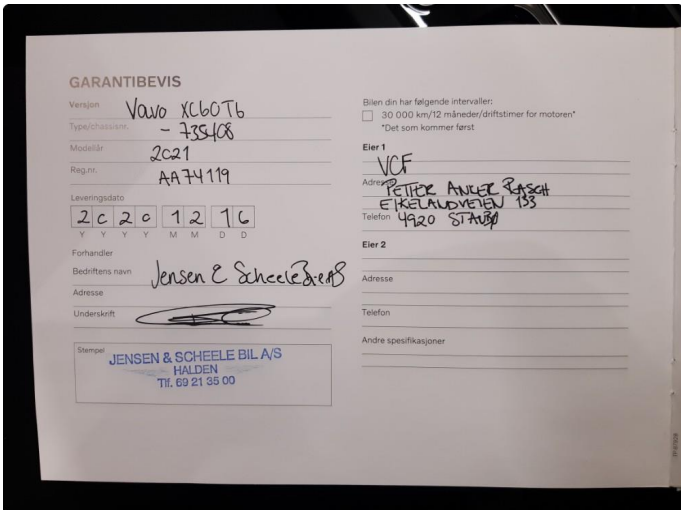 GARANTIBEVIS
Versjon Volvo XC60 T6
Type/chassisnr. - 735408
Modellår 2021
Reg.nr. AA74119
Leveringsdato
2020 12 16
Y Y Y Y M M D D
Forhandler
Bedriftens navn Jensen & Scheele Bil AS
Adresse
Underskrift
Stempel
JENSEN & SCHEELE BIL A/S
HALDEN
Tlf. 69 21 35 00
Bilen din har følgende intervaller:
30 000 km/12 måneder/driftstimer for motoren*
*Det som kommer først
Eier 1
VCF
Adresse PETTER ANKER RASCH
EIKELANDVEIEN 133
Telefon 4920 STAUBØ
Eier 2
Adresse
Telefon
Andre spesifikasjoner